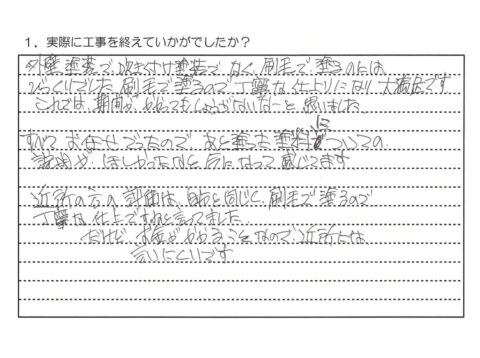 1. 実際に工事を終えていかがでしたか？
外壁塗装で吹き付け塗装でなく、刷毛で塗るのには
びっくりでした。刷毛で塗るので丁寧な仕上りになり大満足です
これでは、期間がかかってもしょうがないな〜と思いました
すべてお任せだったので、あと塗った塗料についての
説明が、ほしかったなと 後になって感じてます。
近所の方の評価は、自分と同じく、刷毛で塗るので
丁寧な仕上ですねと言ってました。
だけど、お金がかかることなので、近所には
言いにくいです